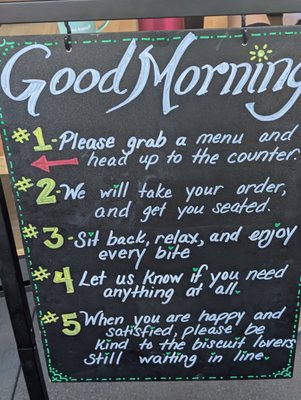 Good Morning
#1 - Please grab a menu and
head up to the counter
#2 - We will take your order,
and get you seated.
#3 - Sit back, relax, and enjoy
every bite
#4 Let us know if you need
anything at all.
#5 When you are happy and
satisfied, please be
kind to the biscuit lovers
still waiting in line.